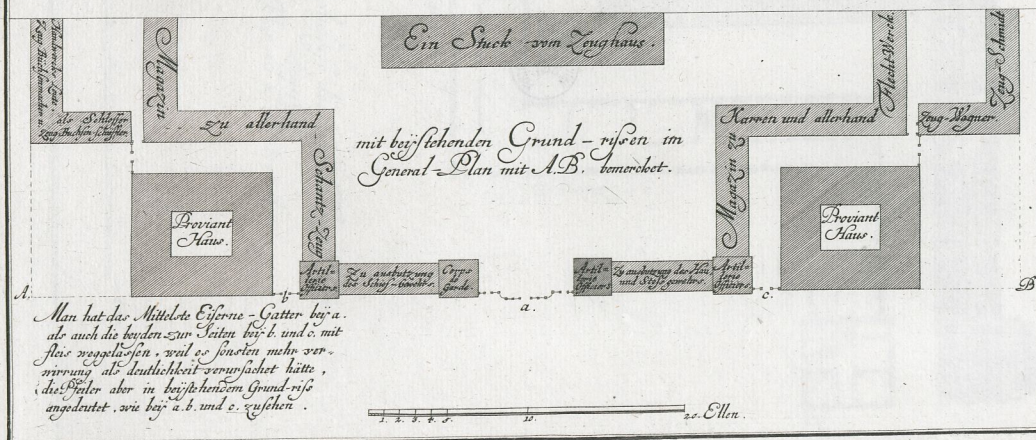 Handwercks Leute,
Zeug-Büchsenmacher u.
als Schlosser
Zeug-Büchsen-schiffter.
Magazin
zu allerhand
Schantz-Zeug
Ein Stuck vom Zeughaus.
mit beÿstehenden Grund-rissen im
General-Plan mit A.B. bemercket.
Magazin zu
Karren und allerhand
Flecht-Werck.
Zeug-Wagner.
Zeug-Schmidt
Proviant
Haus.
Proviant
Haus.
A.
b
Artil-
lerie
Officiers
Zu ausbutzung
des Schies-Gewehrs.
Corps
de
Garde.
a.
Artil-
lerie
Officiers
Zu ausbutzung des Hau,
und Stoss gewehrs.
Artil-
lerie
Officiers.
c.
B
Man hat das Mittelste Eiserne-Gatter beÿ a.
als auch die beyden zur Seiten beÿ b. und c. mit
fleis weggelassen, weil es sonsten mehr ver-
wirrung als deutlichkeit verursachet hätte,
die Pfeiler aber in beÿstehendem Grund-riss
angedeutet, wie beÿ a. b. und c. zusehen.
1. 2. 3. 4. 5. 10. 20. Ellen.